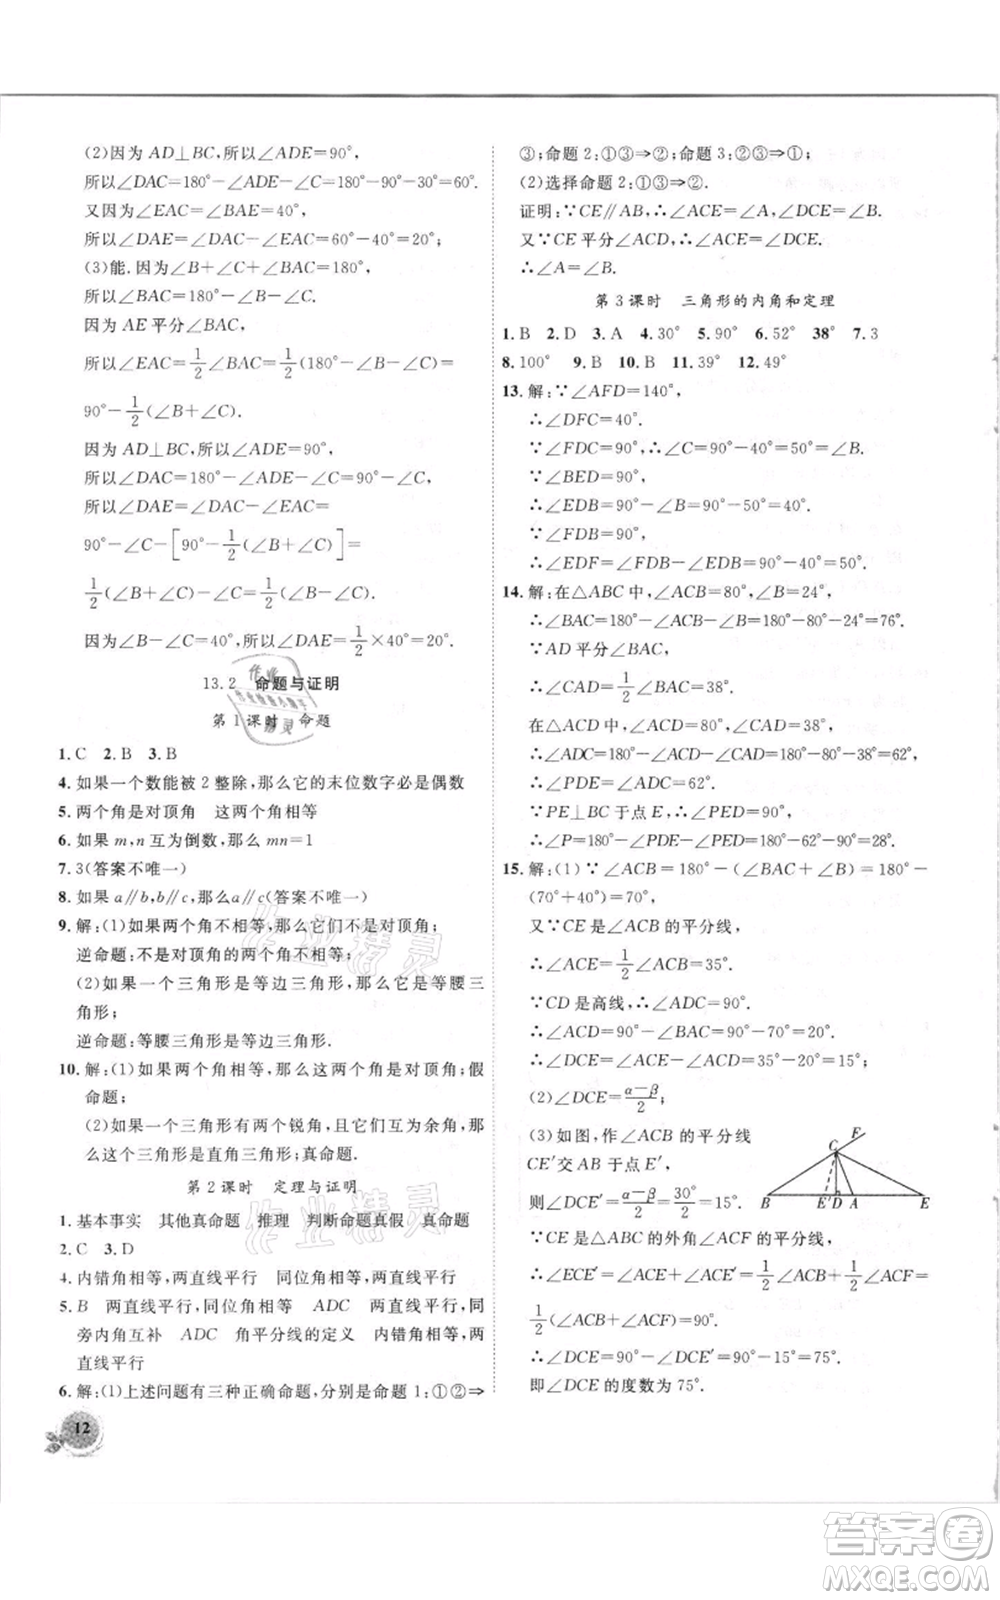 (2)因为 AD⊥BC,所以∠ADE=90°,
所以∠DAC=180°-∠ADE-∠C=180°-90°-30°=60°.
又因为∠EAC=∠BAE=40°,
所以∠DAE=∠DAC-∠EAC=60°-40°=20°;
(3)能.因为∠B+∠C+∠BAC=180°,
所以∠BAC=180°-∠B-∠C.
因为 AE 平分∠BAC,
所以∠EAC=1/2∠BAC=1/2(180°-∠B-∠C)=
90°-1/2(∠B+∠C).
因为 AD⊥BC,所以∠ADE=90°,
所以∠DAC=180°-∠ADE-∠C=90°-∠C,
所以∠DAE=∠DAC-∠EAC=
90°-∠C-[90°-1/2(∠B+∠C)]=
1/2(∠B+∠C)-∠C=1/2(∠B-∠C).
因为∠B-∠C=40°,所以∠DAE=1/2×40°=20°.
13.2 命题与证明
第1课时 命题
1.C 2.B 3.B
4.如果一个数能被2整除,那么它的末位数字必是偶数
5.两个角是对顶角 这两个角相等
6.如果 m,n 互为倒数,那么 mn=1
7.3(答案不唯一)
8.如果 a∥b,b∥c,那么 a∥c(答案不唯一)
9.解:(1)如果两个角不相等,那么它们不是对顶角;
逆命题:不是对顶角的两个角不相等.
(2)如果一个三角形是等边三角形,那么它是等腰三角形;
逆命题:等腰三角形是等边三角形.
10.解:(1)如果两个角相等,那么这两个角是对顶角;假
命题;
(2)如果一个三角形有两个锐角,且它们互为余角,那
么这个三角形是直角三角形;真命题.
第2课时 定理与证明
1.基本事实 其他真命题 推理 判断命题真假 真命题
2.C 3.D
4.内错角相等,两直线平行 同位角相等,两直线平行
5.B 两直线平行,同位角相等 ADC 两直线平行,同
旁内角互补 ADC 角平分线的定义 内错角相等,两
直线平行
6.解:(1)上述问题有三种正确命题,分别是命题1:①②⇒
12
③;命题2:①③⇒②;命题3:②③⇒①;
(2)选择命题2:①③⇒②.
证明:∵CE∥AB,∴∠ACE=∠A,∠DCE=∠B.
又∵CE 平分∠ACD,∴∠ACE=∠DCE.
∴∠A=∠B.
第3课时 三角形的内角和定理
1.B 2.D 3.A 4.30° 5.90° 6.52° 38° 7.3
8.100° 9.B 10.B 11.39° 12.49°
13.解:∵∠AFD=140°,
∴∠DFC=40°.
∵∠FDC=90°,∴∠C=90°-40°=50°=∠B.
∵∠BED=90°,
∴∠EDB=90°-∠B=90°-50°=40°.
∵∠FDB=90°,
∴∠EDF=∠FDB-∠EDB=90°-40°=50°.
14.解:在△ABC 中,∠ACB=80°,∠B=24°,
∴∠BAC=180°-∠B-∠ACB=180°-80°-24°=76°.
∵AD 平分∠BAC,
∴∠CAD=1/2∠BAC=38°.
在△ACD 中,∠ACD=80°,∠CAD=38°,
∴∠ADC=180°-∠ACD-∠CAD=180°-80°-38°=62°,
∴∠PDE=∠ADC=62°.
∵PE⊥BC 于点 E,∴∠PED=90°,
∴∠P=180°-∠PDE-∠PED=180°-62°-90°=28°.
15.解:(1)∵∠ACB=180°-(∠BAC+∠B)=180°-
(70°+40°)=70°,
又∵CE 是∠ACB 的平分线,
∴∠ACE=1/2∠ACB=35°.
∵CD 是高线,∴∠ADC=90°.
∴∠ACD=90°-∠BAC=90°-70°=20°,
∴∠DCE=∠ACE-∠ACD=35°-20°=15°;
(2)∠DCE=(α-β)/2;
(3)如图,作∠ACB 的平分线
CE′交 AB 于点 E′,
则∠DCE′=(α-β)/2=30°/2=15°.
∵CE 是△ABC 的外角∠ACF 的平分线,
∴∠ECE′=∠ACE+∠ACE′=1/2∠ACB+1/2∠ACF=
1/2(∠ACB+∠ACF)=90°.
∴∠DCE=90°-∠DCE′=90°-15°=75°.
即∠DCE 的度数为75°.
F
C
B
E′
D
A
E
作业精灵
作业精灵
答案卷
MXQE.COM